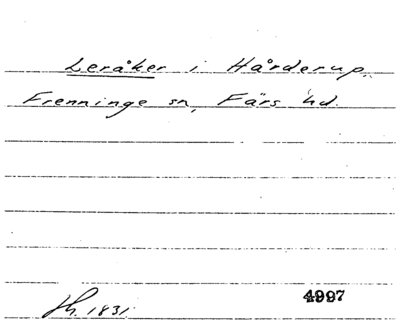 Leråker i Hårderup,
Frenninge sn, Färs hd.
4997
Sk. 1831.